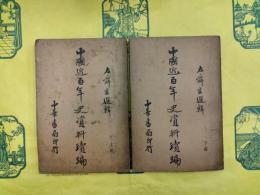 中國近百年史資料續編
左舜生選輯
中華書局印行
上冊
中國近百年史資料續編
左舜生選輯
中華書局印行
下冊